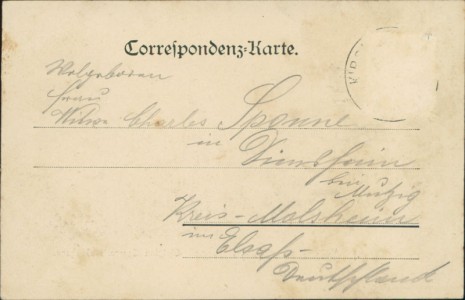 Correspondenz-Karte.
Wolgeboren
Frau
Witwe Charles Sponne
in
Dinsheim
bei Mutzig
Kreis-Molsheim
im
Elsaß-
Deutschland